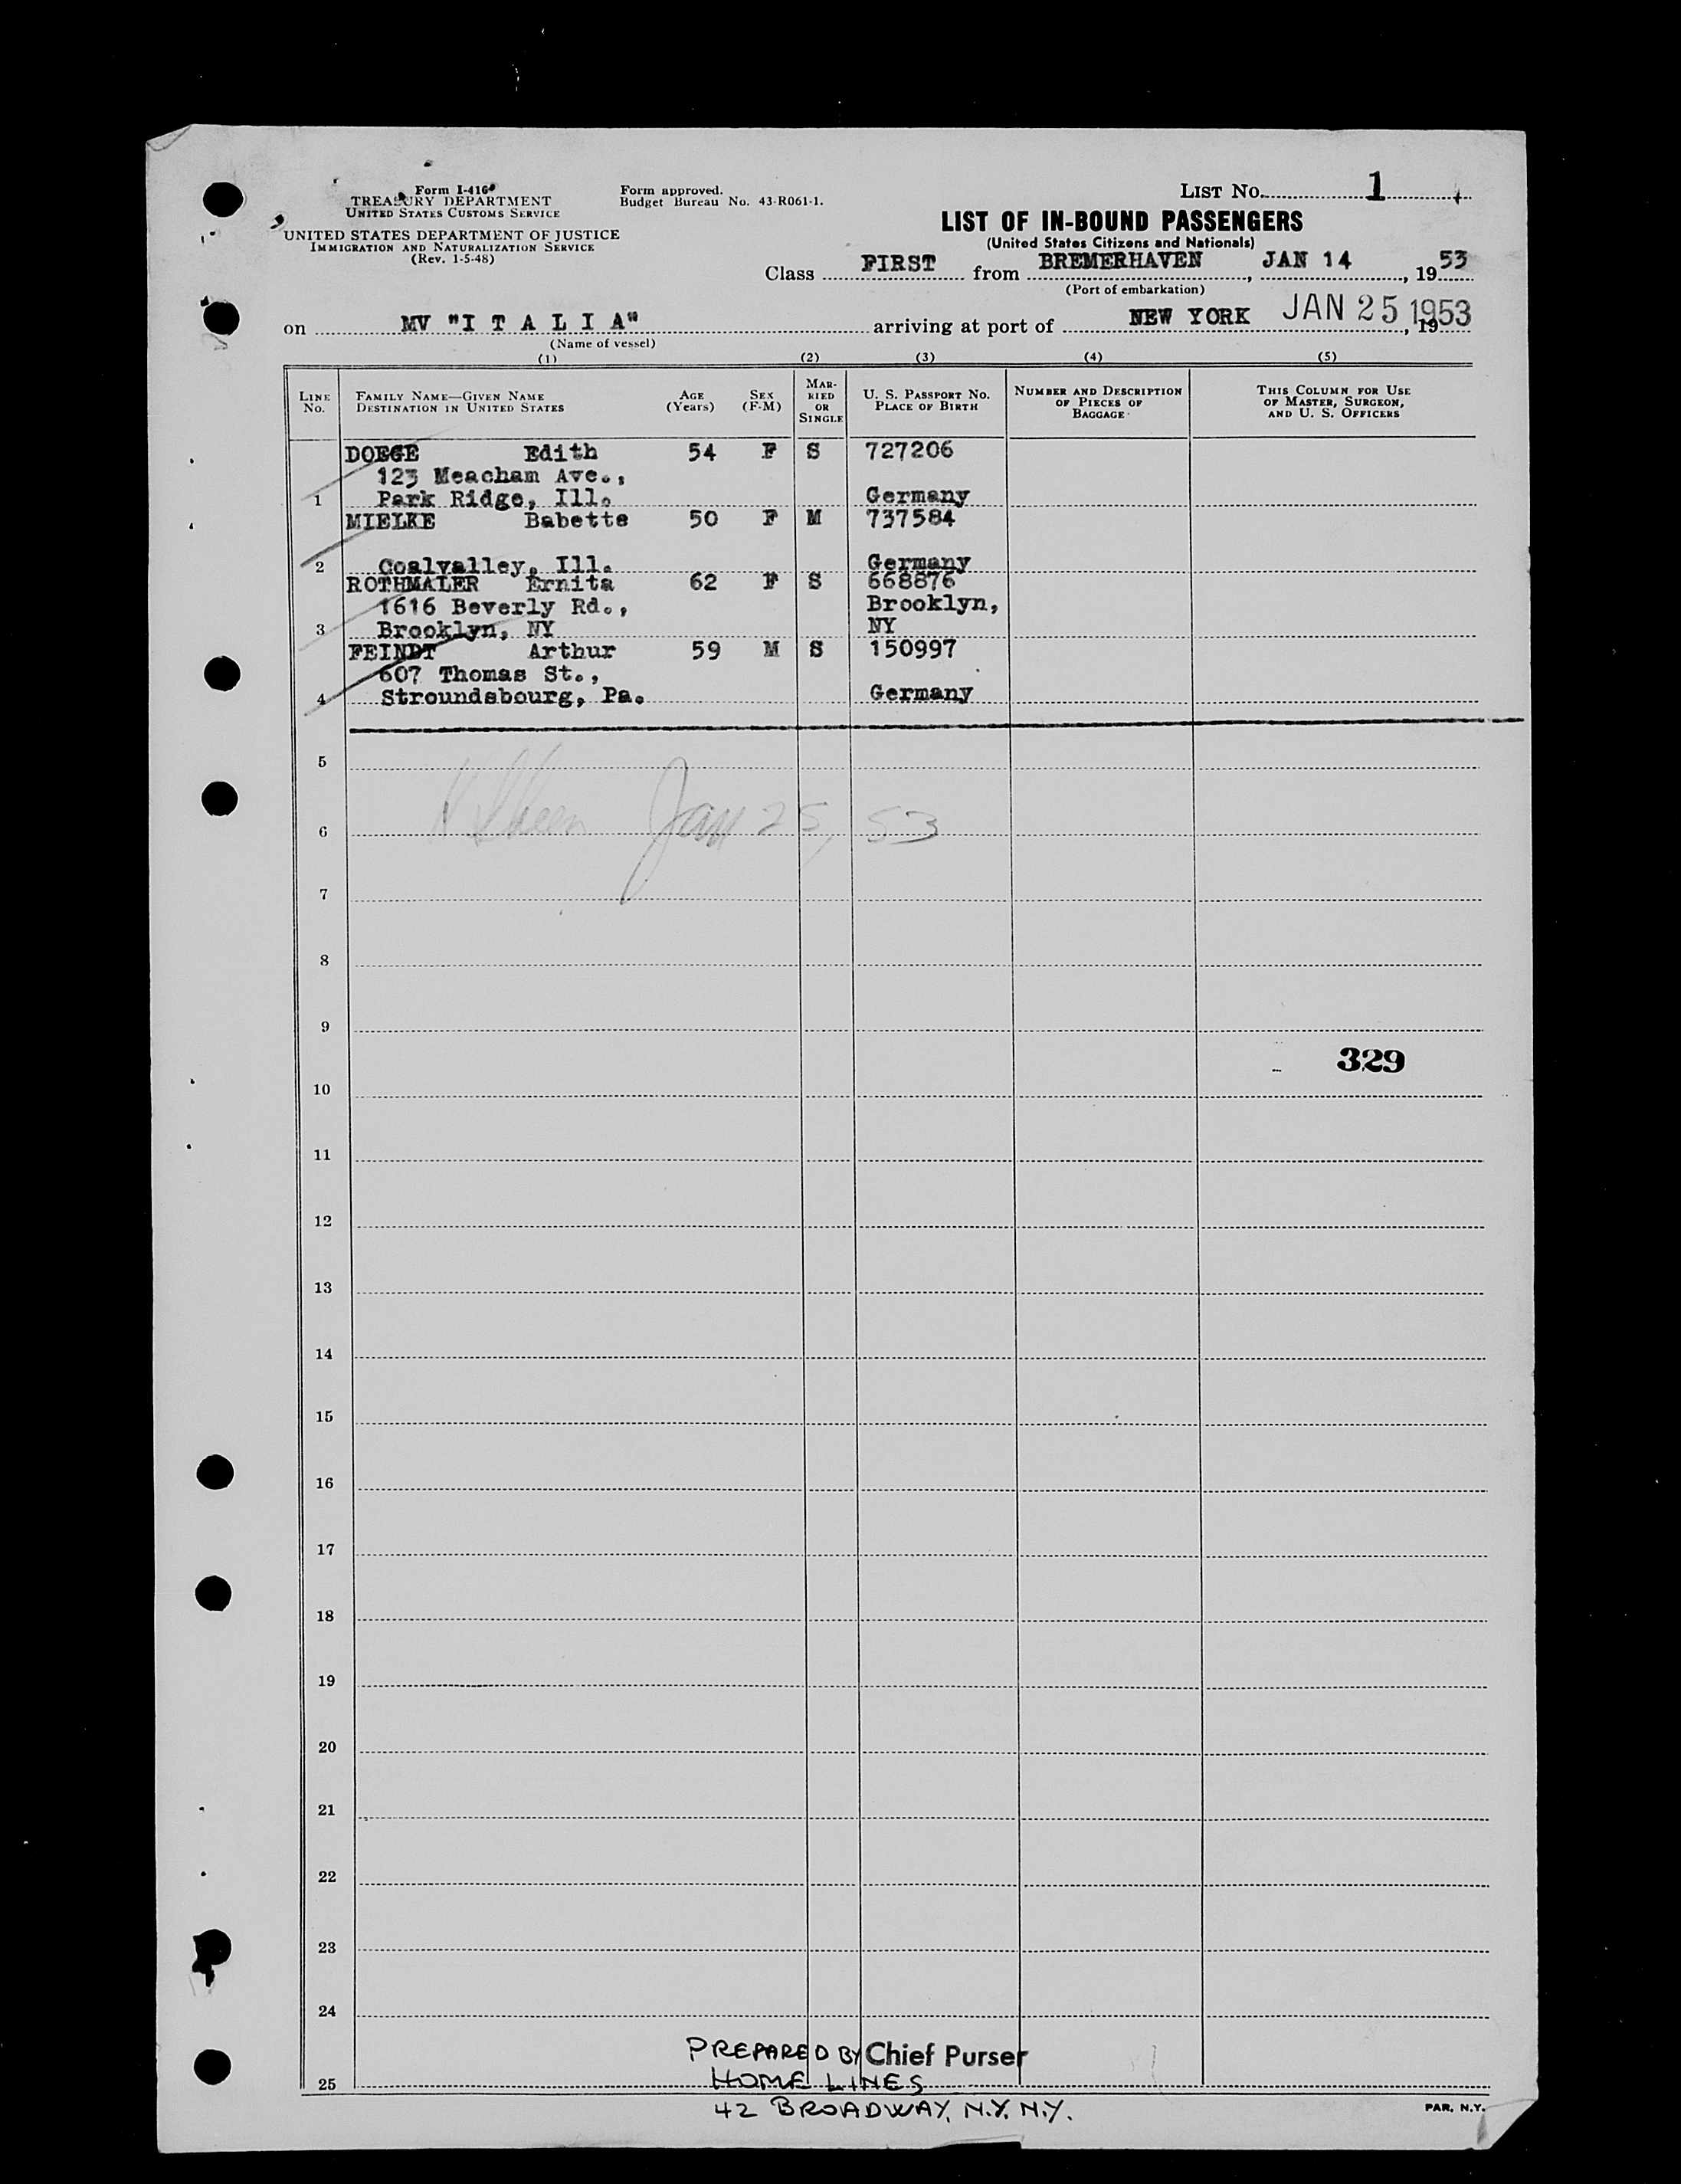 Form I-416
TREASURY DEPARTMENT
UNITED STATES CUSTOMS SERVICE
UNITED STATES DEPARTMENT OF JUSTICE
IMMIGRATION AND NATURALIZATION SERVICE
(Rev. 1-5-48)
Form approved.
Budget Bureau No. 43-R061-1.
LIST No. 1
LIST OF IN-BOUND PASSENGERS
(United States Citizens and Nationals)
Class FIRST from BREMERHAVEN, JAN 14, 1953
(Port of embarkation)
on MV "I T A L I A" arriving at port of NEW YORK JAN 25 1953, 19
(Name of vessel)
(1) (2) (3) (4) (5)
LINE No.
FAMILY NAME—GIVEN NAME
DESTINATION IN UNITED STATES
AGE (Years)
SEX (F-M)
MARRIED OR SINGLE
U. S. PASSPORT NO.
PLACE OF BIRTH
NUMBER AND DESCRIPTION OF PIECES OF BAGGAGE
THIS COLUMN FOR USE OF MASTER, SURGEON, AND U. S. OFFICERS
DOEGE Edith 54 F S 727206
123 Meacham Ave.,
1 Park Ridge, Ill. Germany
MIELKE Babette 50 F M 737584
2 Coalvalley, Ill. Germany
ROTHMALER Ernita 62 F S 668876
1616 Beverly Rd., Brooklyn,
3 Brooklyn, NY NY
FEINDT Arthur 59 M S 150997
607 Thomas St.,
4 Stroundsbourg, Pa. Germany
5
Jan 25, 53
6
7
8
9
329
10
11
12
13
14
15
16
17
18
19
20
21
22
23
24
PREPARED BY Chief Purser
25 HOME LINES
42 BROADWAY, N.Y. N.Y.
PAR. N.Y.